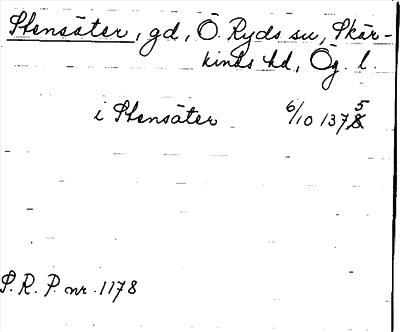 Stensäter, gd, Ö. Ryds sn, Skär-
kinds hd, Ög. l.
i Stensäter 6/10 1375
S. R. P. nr. 1178